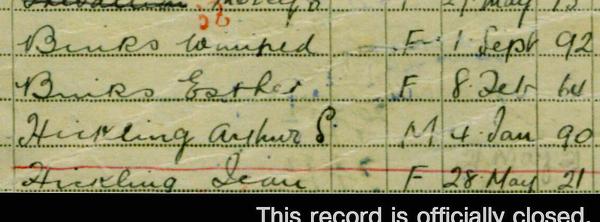 27 May
Binks Winifred F 1 Sept 92
Binks Esther F 8 Feb 64
Hickling Arthur S. M 4 Jan 90
Hickling Jean F 28 May 21
This record is officially closed.